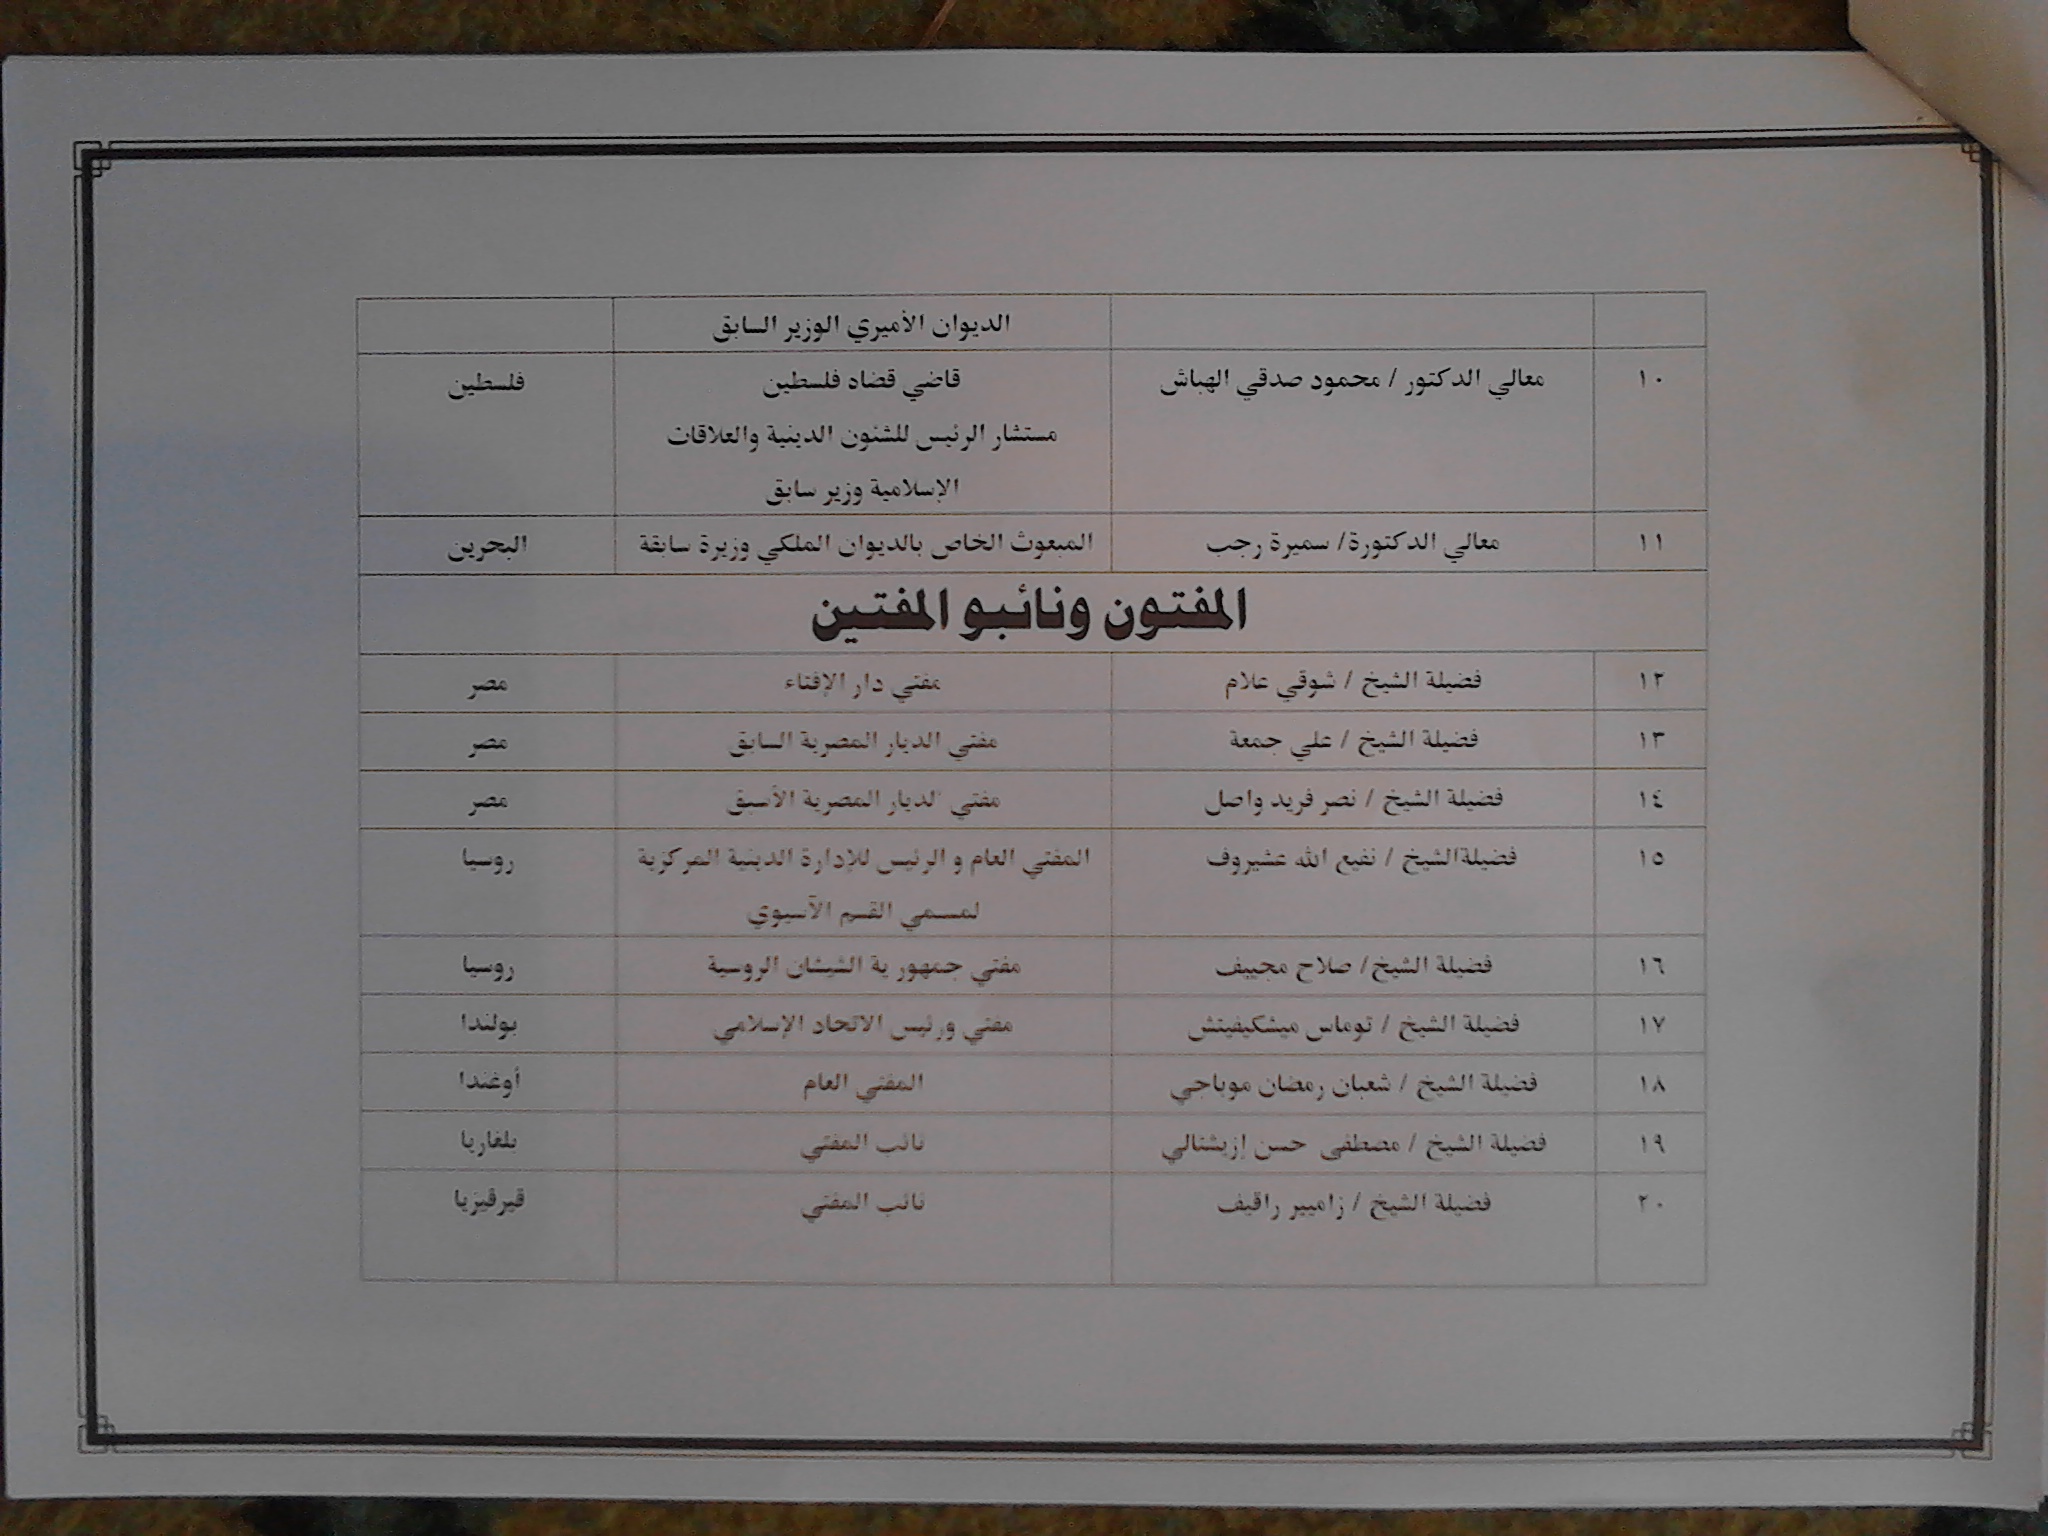 الديوان الأميري الوزير السابق
١٠ معالي الدكتور / محمود صدقي الهباش قاضي قضاه فلسطين فلسطين
مستشار الرئيس للشئون الدينية والعلاقات
الإسلامية وزير سابق
١١ معالي الدكتورة/ سميرة رجب المبعوث الخاص بالديوان الملكي وزيرة سابقة البحرين
المفتون ونائبو المفتين
١٢ فضيلة الشيخ / شوقي علام مفتي دار الإفتاء مصر
١٣ فضيلة الشيخ / علي جمعة مفتي الديار المصرية السابق مصر
١٤ فضيلة الشيخ / نصر فريد واصل مفتي الديار المصرية الأسبق مصر
١٥ فضيلةالشيخ / نفيع الله عشيروف المفتي العام و الرئيس للإدارة الدينية المركزية روسيا
لمسمي القسم الآسيوي
١٦ فضيلة الشيخ/ صلاح مجييف مفتي جمهورية الشيشان الروسية روسيا
١٧ فضيلة الشيخ / توماس ميشكيفيتش مفتي ورئيس الاتحاد الإسلامي بولندا
١٨ فضيلة الشيخ / شعبان رمضان موباجي المفتي العام أوغندا
١٩ فضيلة الشيخ / مصطفى حسن إزيشتالي نائب المفتي بلغاريا
٢٠ فضيلة الشيخ / زاميير راقيف نائب المفتي قيرقيزيا